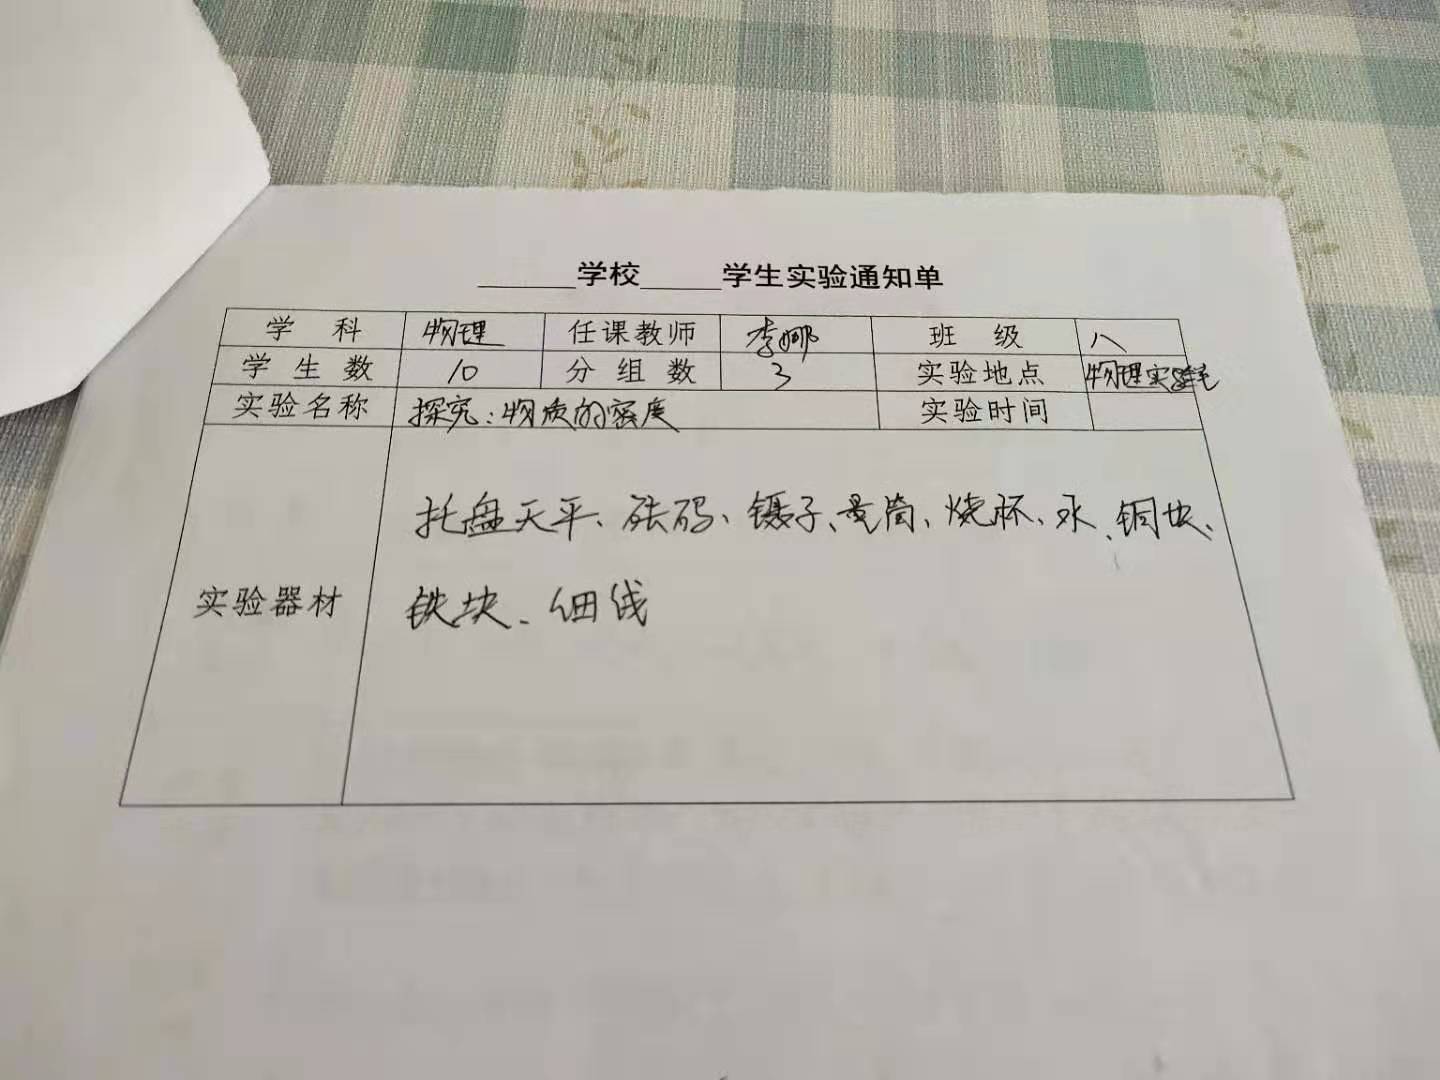 ______学校_____学生实验通知单
学 科 物理 任课教师 李娜 班 级 八
学 生 数 10 分 组 数 3 实验地点 物理实验室
实验名称 探究:物质的密度 实验时间
实验器材 托盘天平、砝码、镊子、量筒、烧杯、水、铜块、
铁块、细线